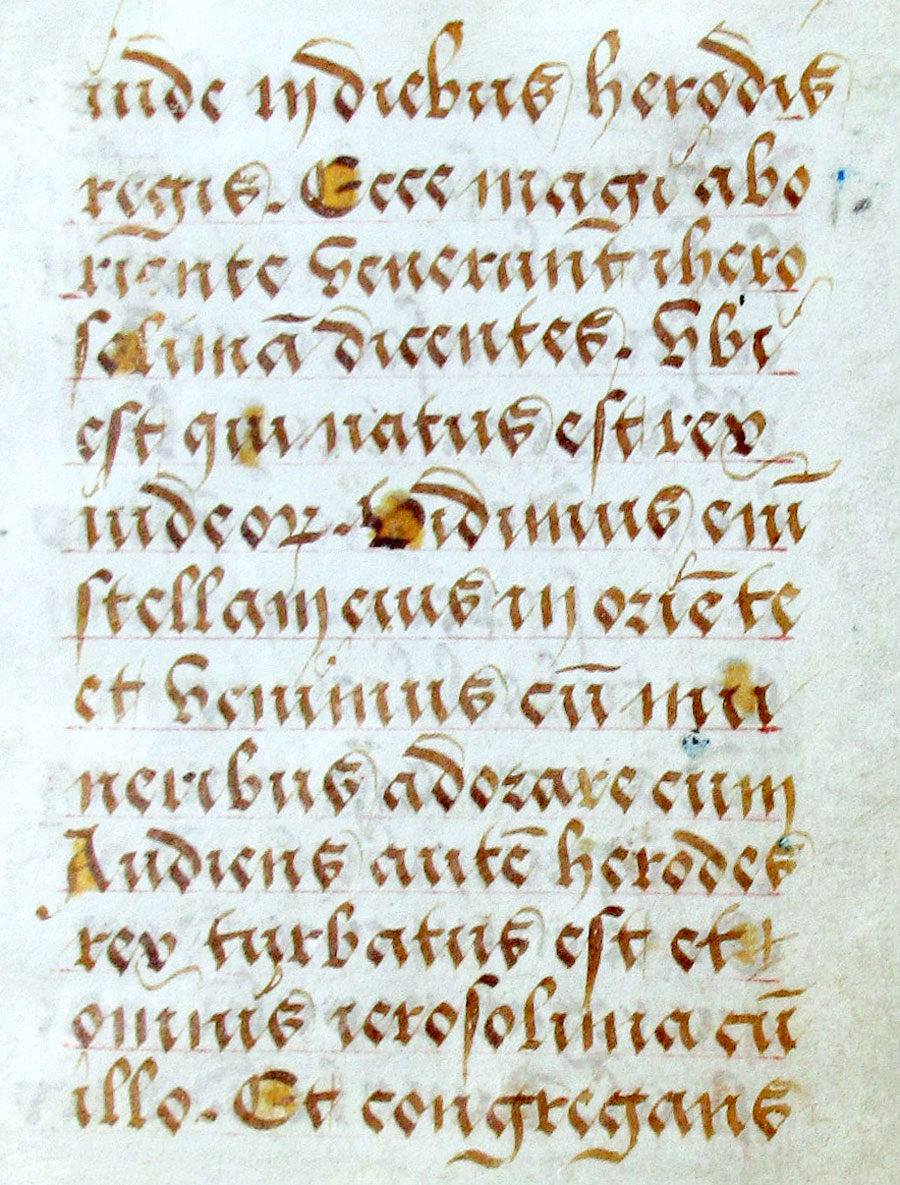 iude in diebus herodis
regis. Ecce magi abo
riente venerunt ihero
solimā dicentes. Vbi
est qui natus est rex
iudeoꝝ. Vidimus eniȝ
stellam eius in oriēte
et venimus cū mu
neribus adorare eum
Audiens autē herodes
rex turbatus est et
omnis ierosolima cū
illo. Et congregans